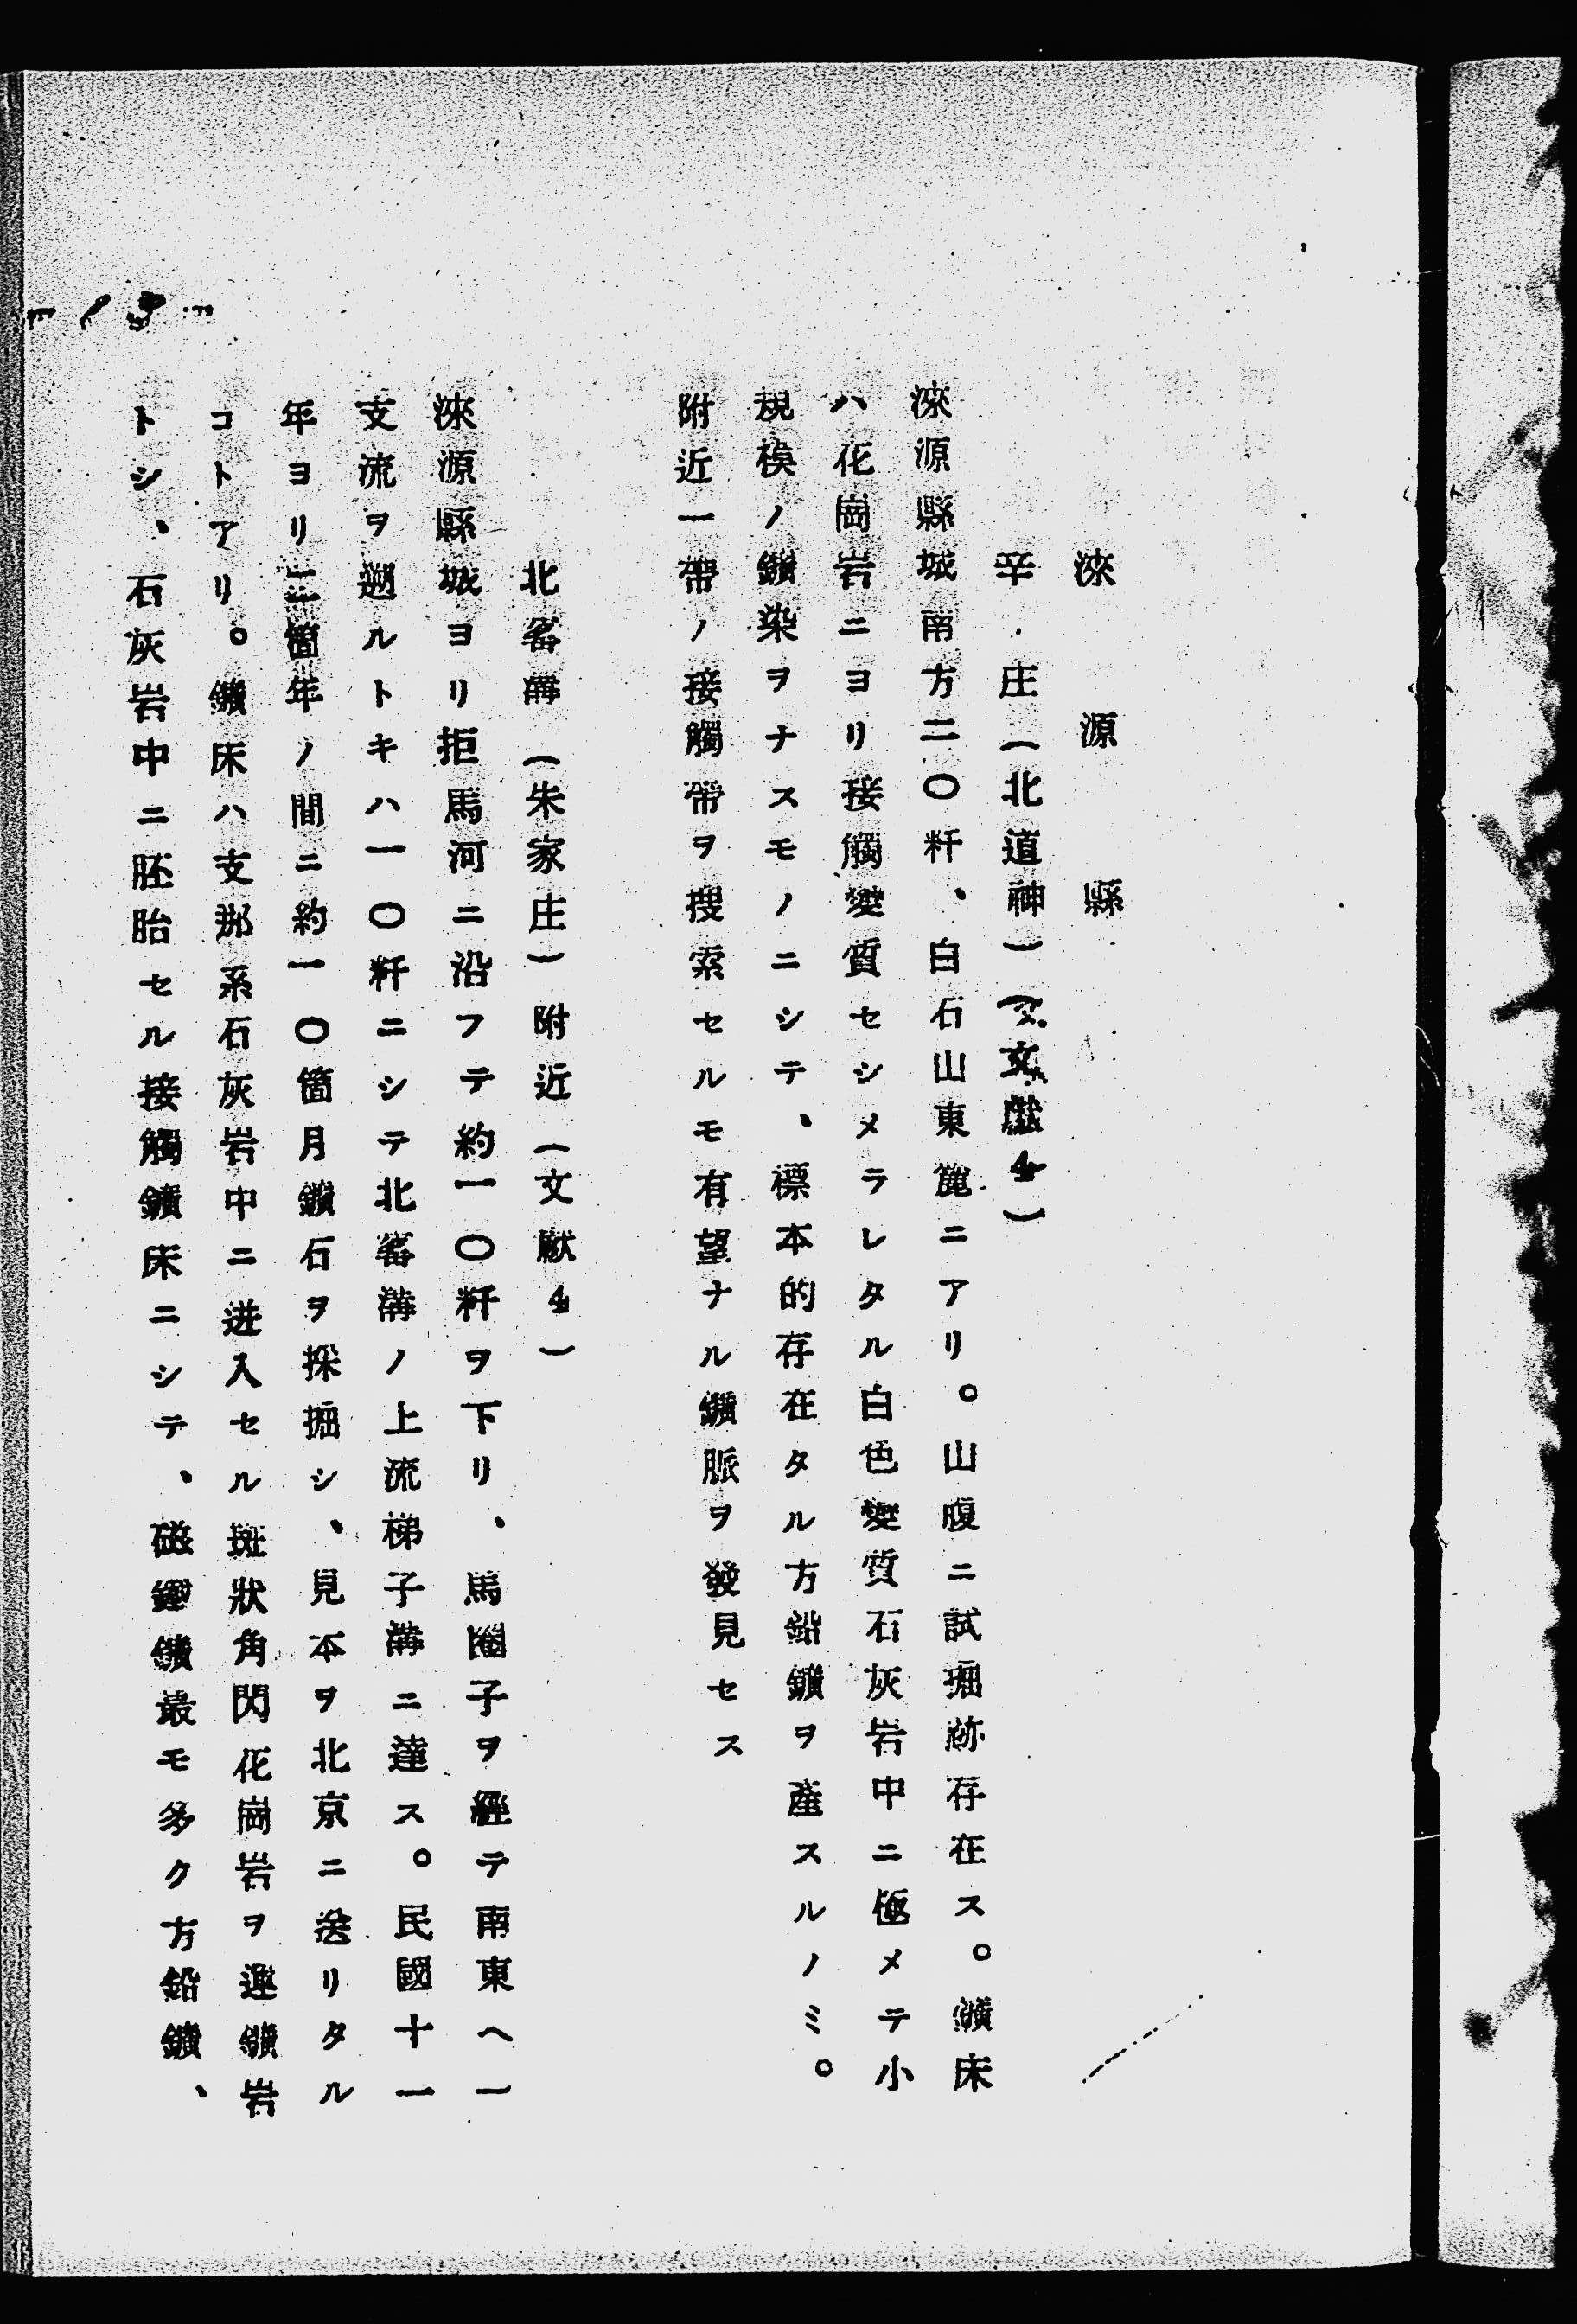 淶源縣
辛庄(北道神)(文獻4)
淶源縣城南方二〇粁、白石山東麓ニアリ。山腹ニ試掘跡存在ス。鑛床
ハ花崗岩ニヨリ接觸變質セシメラレタル白色變質石灰岩中ニ極メテ小
規模ノ鑛染ヲナスモノニシテ、標本的存在タル方鉛鑛ヲ產スルノミ。
附近一帶ノ接觸帶ヲ搜索セルモ有望ナル鑛脈ヲ發見セス
北窰溝(朱家庄)附近(文獻4)
淶源縣城ヨリ拒馬河ニ沿フテ約一〇粁ヲ下リ、馬圈子ヲ經テ南東ヘ一
支流ヲ遡ルトキハ一〇粁ニシテ北窰溝ノ上流梯子溝ニ達ス。民國十一
年ヨリ二箇年ノ間ニ約一〇箇月鑛石ヲ採掘シ、見本ヲ北京ニ送リタル
コトアリ。鑛床ハ支那系石灰岩中ニ迸入セル斑狀角閃花崗岩ヲ運鑛岩
トシ、石灰岩中ニ胚胎セル接觸鑛床ニシテ、磁鐵鑛最モ多ク方鉛鑛、